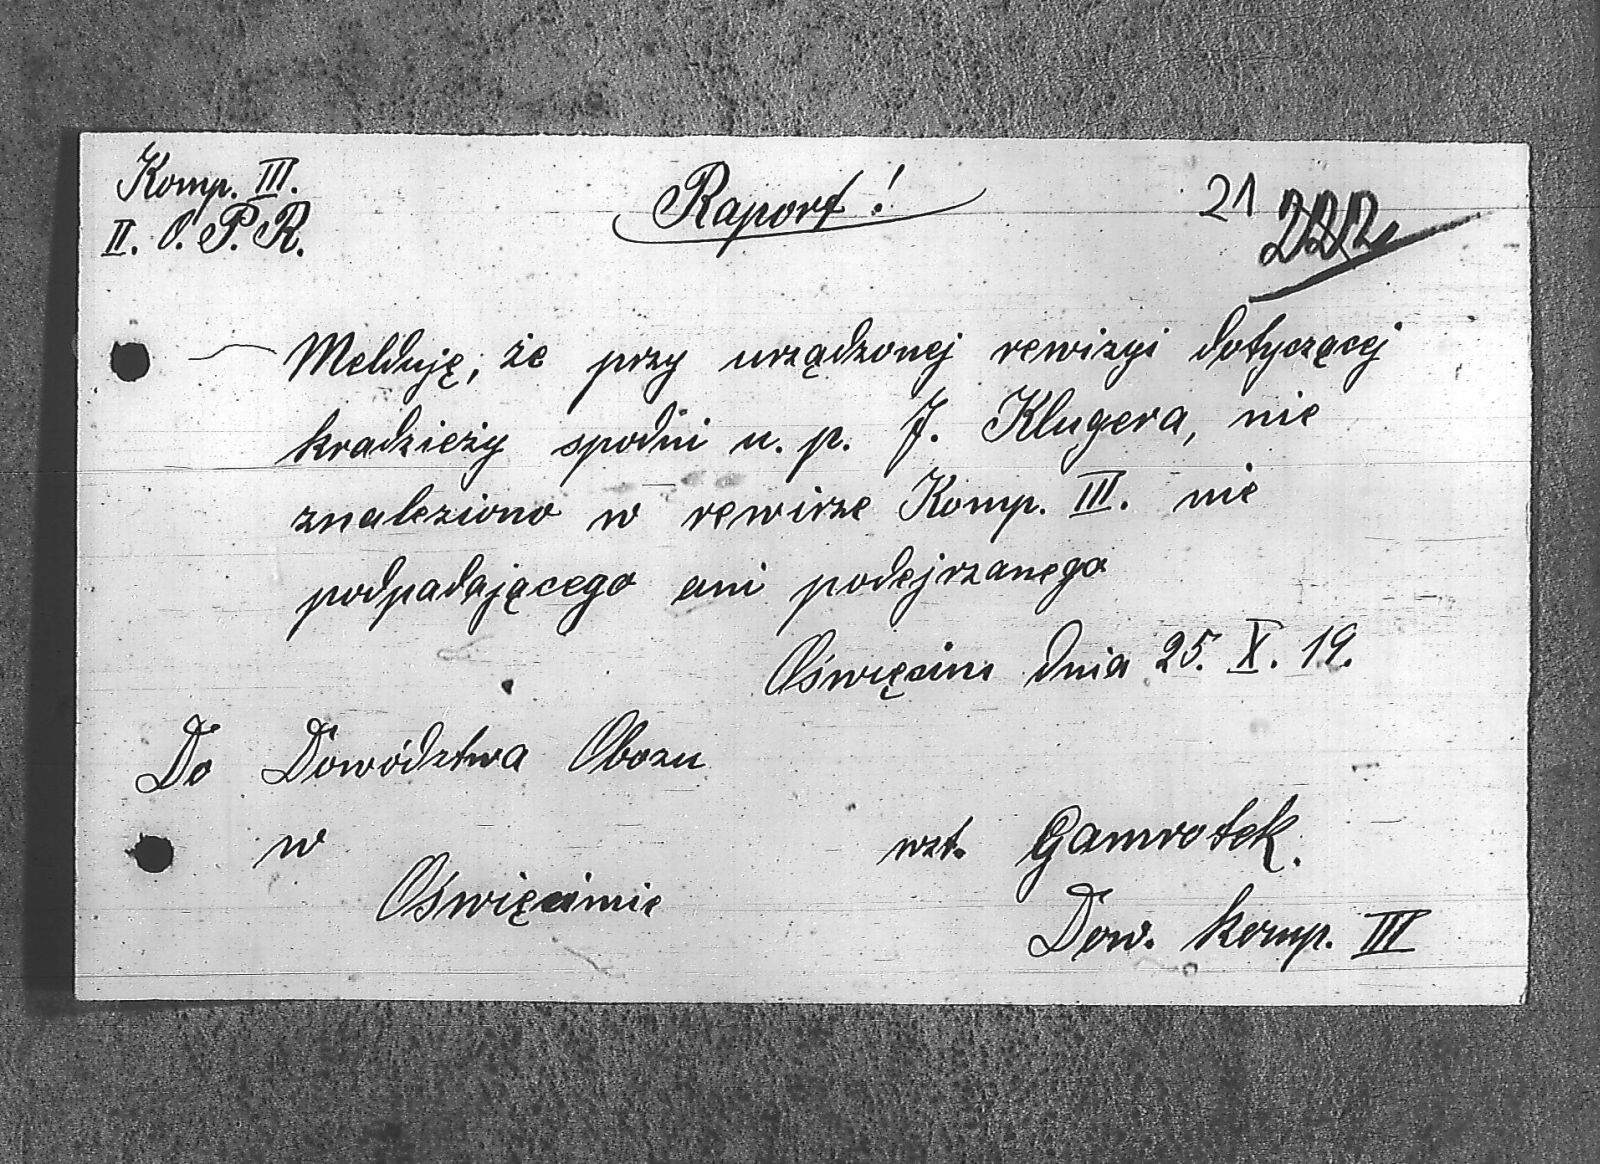 Komp. III.
II. O. P. R.
Raport!
21
222
Melduję, że przy urządzonej rewizyi dotyczącej
kradzieży spodni u. p. J. Klugera, nie
znaleziono w rewirze Komp. III. nic
podpadającego ani podejrzanego
Oświęcim dnia 25. X. 19.
Do Dowództwa Obozu
w
Oświęcimie
wzt. Gamrotek.
Dow. komp. III